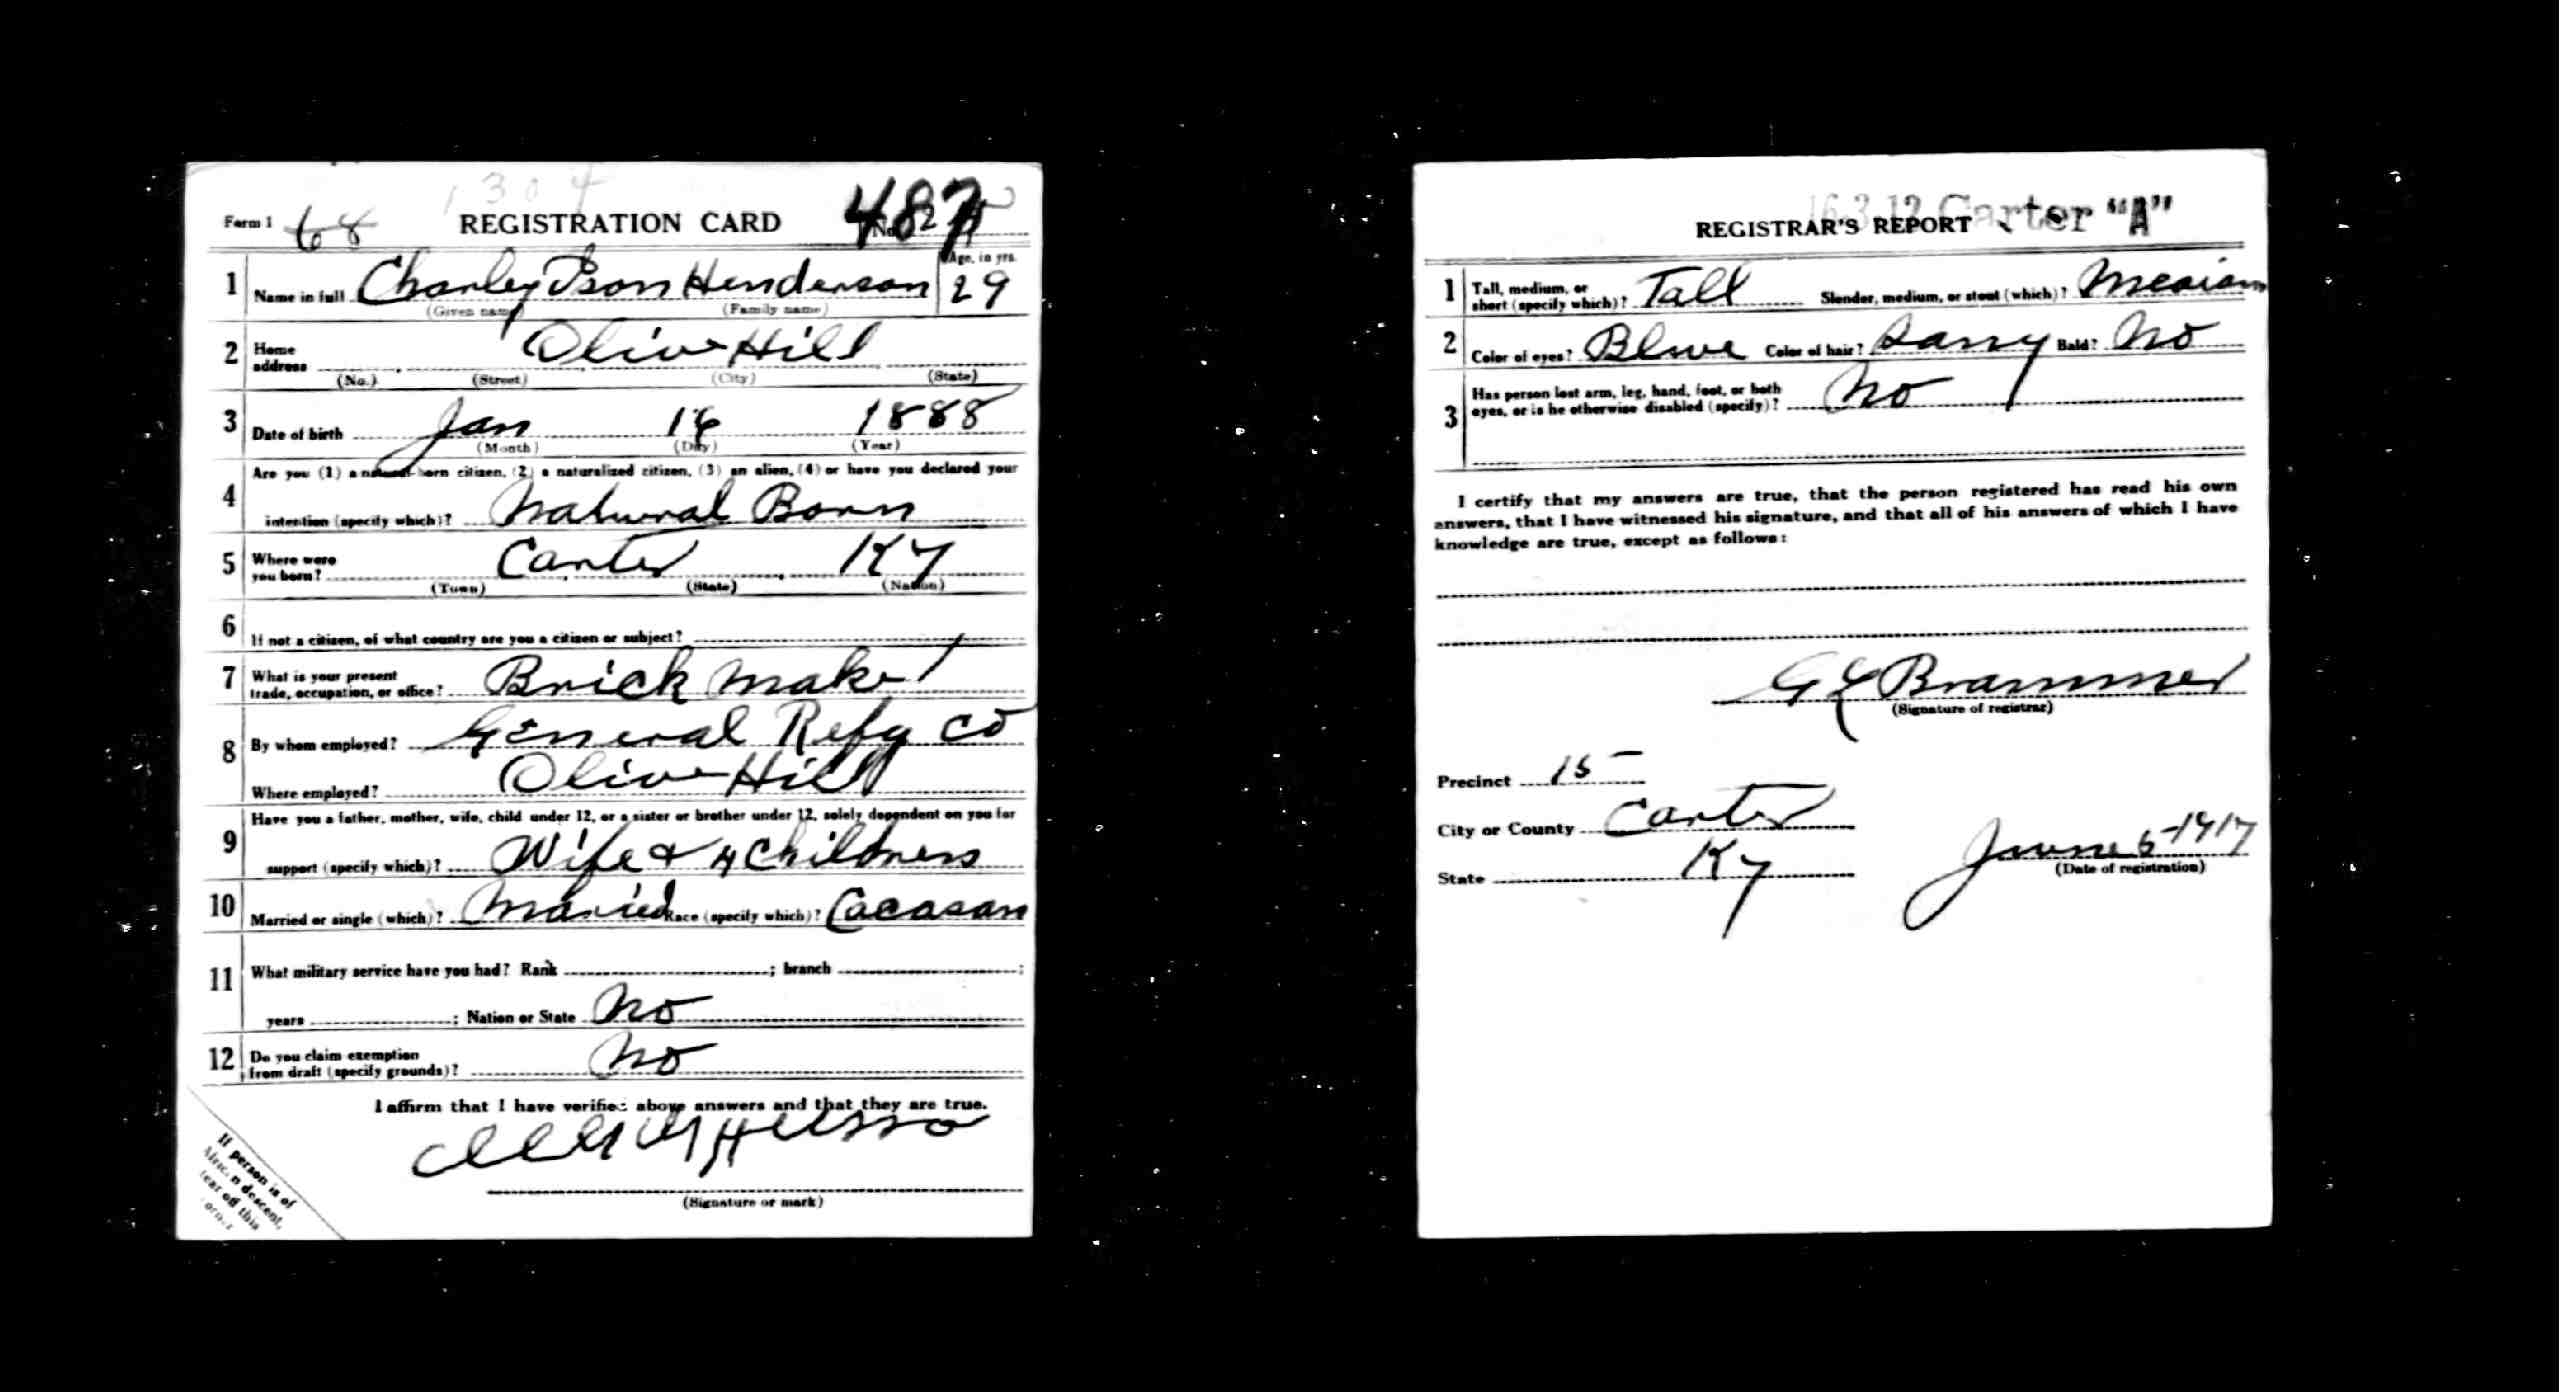 1304
Form 1 68 REGISTRATION CARD No. 487
Age, in yrs.
1 Name in full Charley Ison Henderson 29
(Given name) (Family name)
2 Home address Olive Hill
(No.) (Street) (City) (State)
3 Date of birth Jan 16 1888
(Month) (Day) (Year)
4 Are you (1) a natural-born citizen, (2) a naturalized citizen, (3) an alien, (4) or have you declared your
intention (specify which)? Natural Born
5 Where were you born? Carter Ky
(Town) (State) (Nation)
6 If not a citizen, of what country are you a citizen or subject?
7 What is your present trade, occupation, or office? Brick Maker
8 By whom employed? General Refg Co
Where employed? Olive Hill
9 Have you a father, mother, wife, child under 12, or a sister or brother under 12, solely dependent on you for
support (specify which)? Wife & 4 Childrens
10 Married or single (which)? Maried Race (specify which)? Cacasan
11 What military service have you had? Rank ; branch ;
years ; Nation or State No
12 Do you claim exemption from draft (specify grounds)? No
I affirm that I have verified above answers and that they are true.
(Signature or mark)
If person is of
African descent,
tear off this
corner
16-3-12 Carter "A"
REGISTRAR'S REPORT
1 Tall, medium, or short (specify which)? Tall Slender, medium, or stout (which)? Medium
2 Color of eyes? Blue Color of hair? Bald? No
3 Has person lost arm, leg, hand, foot, or both
eyes, or is he otherwise disabled (specify)? No
I certify that my answers are true, that the person registered has read his own
answers, that I have witnessed his signature, and that all of his answers of which I have
knowledge are true, except as follows:
G L Brammer
(Signature of registrar)
Precinct 15
City or County Carter
State Ky
June 5-1917
(Date of registration)